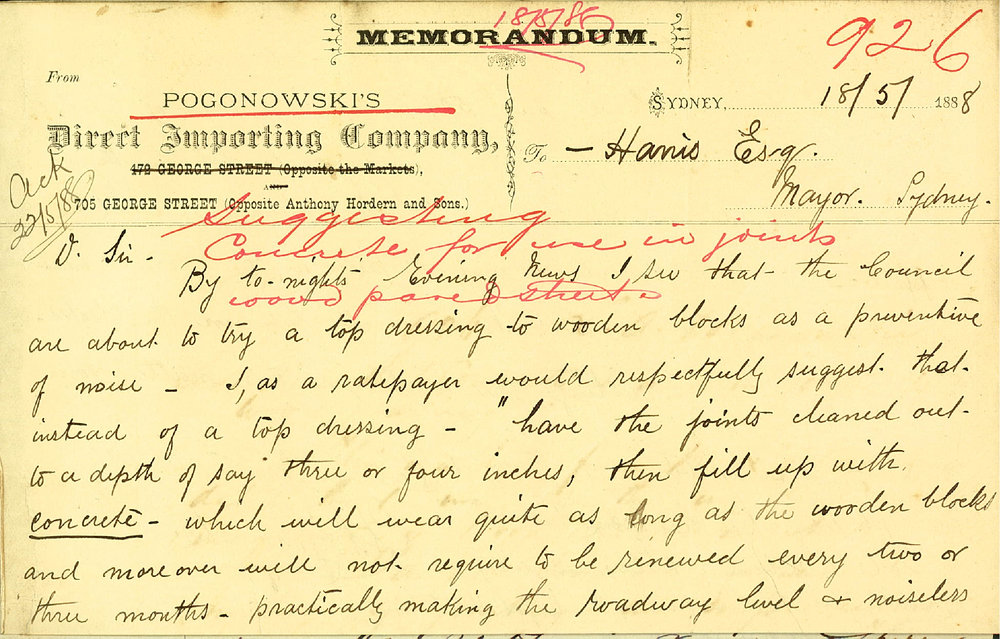 18/5/86
MEMORANDUM.
926
From
POGONOWSKI'S
SYDNEY, 18/5/ 1888
Direct Importing Company,
To — Harris Esq.
172 GEORGE STREET (Opposite the Markets),
AND
Mayor. Sydney.
705 GEORGE STREET (Opposite Anthony Hordern and Sons.)
Ack
22/5/88
Suggesting
Concrete for use in joints
wood paved streets
D. Sir -
By to-nights' Evening News I see that the Council
are about to try a top dressing to wooden blocks as a preventive
of noise - I, as a ratepayer would respectfully suggest that
instead of a top dressing - "have the joints cleaned out
to a depth of say three or four inches, then fill up with
concrete - which will wear quite as long as the wooden blocks
and moreover will not require to be renewed every two or
three months - practically making the roadway level & noiseless